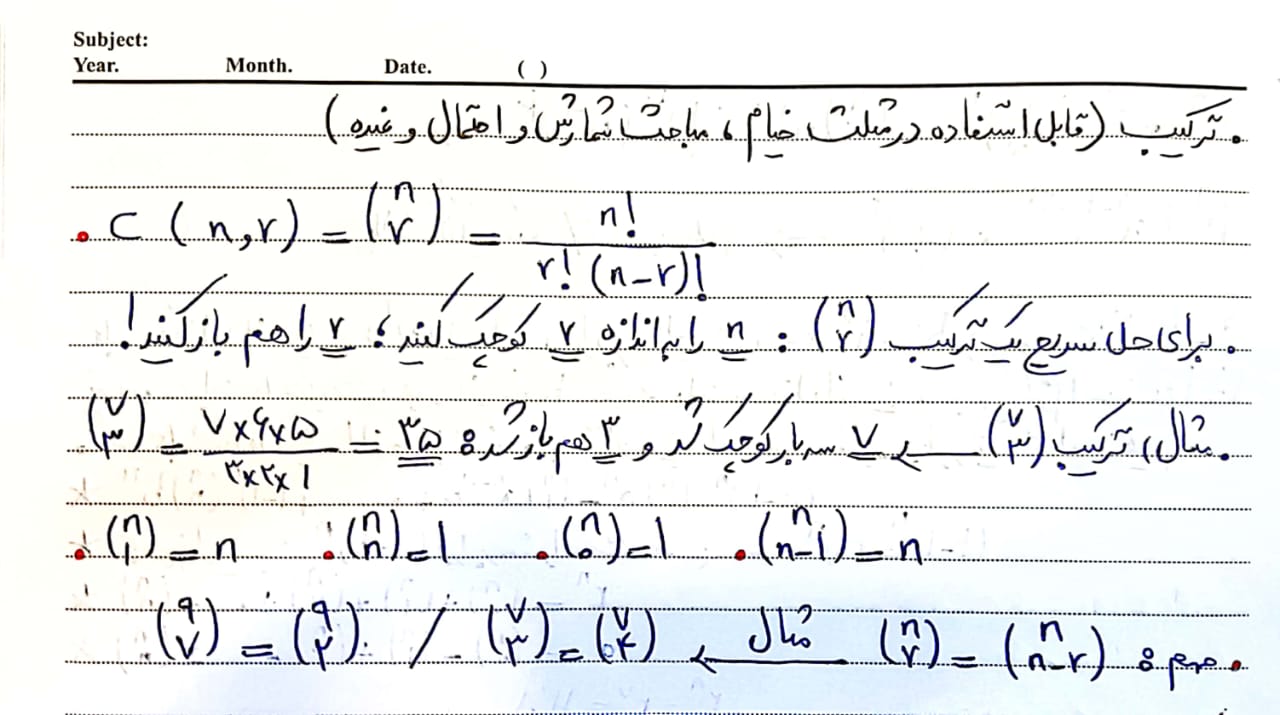 Subject:
Year. Month. Date. ( )
• ترکیب (قابل استفاده در مثلث خیام، مباحث شمارش و احتمال و غیره)
• C (n,r) = (n r) = n! / r! (n-r)!
• برای حل سریع یک ترکیب (n r) : n را به اندازه r کوچک کنید؛ r را هم باز کنید!
• مثال، ترکیب (۷ ۳) ← ۷ سه بار کوچک شد و ۳ هم باز شد: ۳۵ = ۷×۶×۵ / ۳×۲×۱ = (۷ ۳)
• (n ۱) = n • (n n) = 1 • (n ۰) = 1 • (n n-1) = n
• مهم: (n r) = (n n-r) مثال ← (۷ ۳) = (۷ ۴) / (۹ ۷) = (۹ ۲)